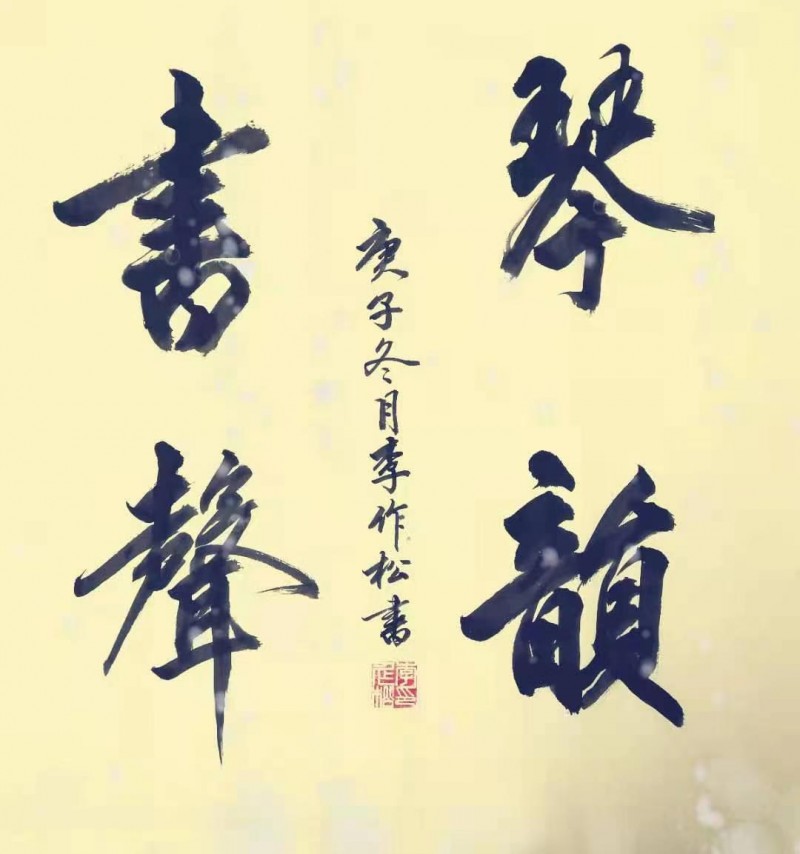 琴韻
書聲
庚子冬月李作松書